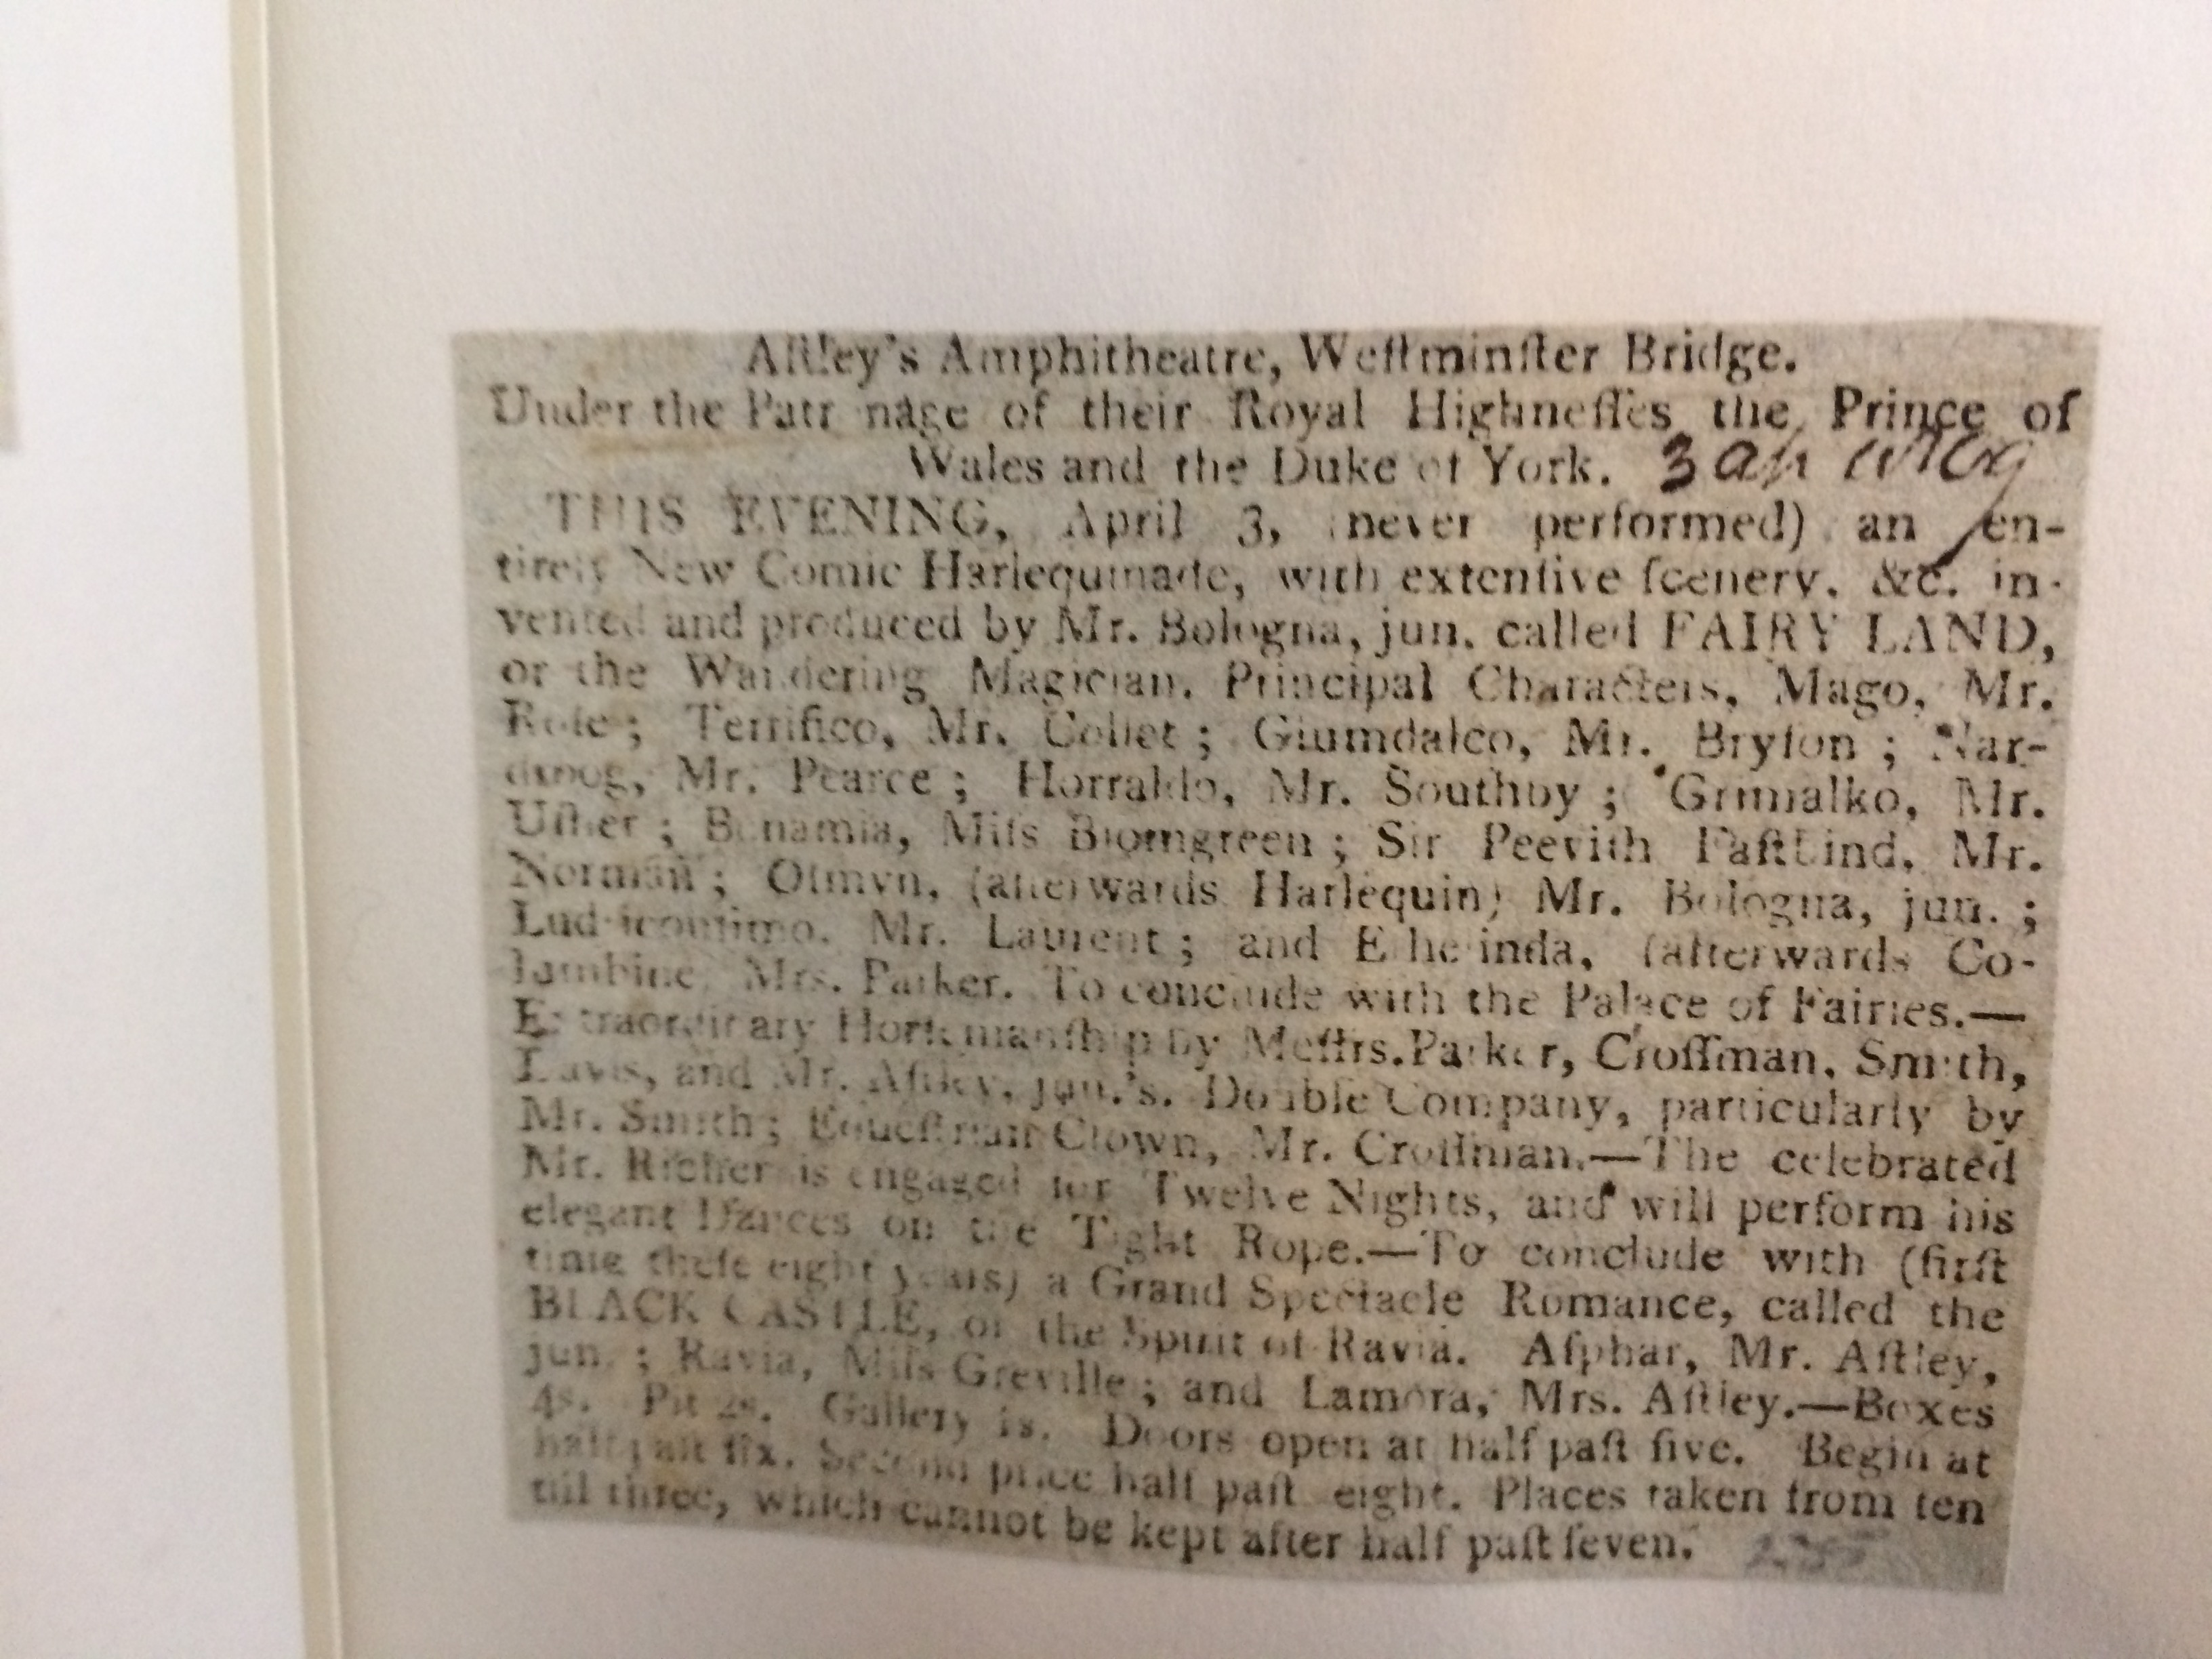 Aſtley's Amphitheatre, Weſtminſter Bridge.
Under the Patr nage of their Royal Highneſſes the Prince of
Wales and the Duke of York. 3
THIS EVENING, April 3, (never performed) an en-
tirely New Comic Harlequinade, with extenſive ſcenery, &c. in-
vented and produced by Mr. Bologna, jun. called FAIRY LAND,
or the Wandering Magician. Principal Characters, Mago, Mr.
; Terrifico, Mr. Collet ; Giumdalco, Mr. Bryſon ; Nar-
Mr. Pearce ; Horraldo, Mr. Southby ; Grimalko, Mr.
Uſher ; Miſs Blomgreen ; Sir Peeviſh Faſtbind, Mr.
Norman ; (afterwards Harlequin) Mr. Bologna, jun. ;
Mr. Laurent ; and (afterwards Co-
lumbine, Mrs. Parker. To conclude with the Palace of Fairies.—
Extraordinary Horſemanſhip by Meſſrs. Parker, Croſſman, Smith,
Davis, and Mr. Aſtley, jun.'s. Double Company, particularly by
Mr. Smith ; Equeſtrian Clown, Mr. Croſſman.—The celebrated
Mr. Richer is engaged for Twelve Nights, and will perform his
elegant Dances on the Tight Rope.—To conclude with (firſt
time theſe eight years) a Grand Spectacle Romance, called the
BLACK CASTLE, or the Spirit of Ravia. Aſphar, Mr. Aſtley,
jun. ; Ravia, Miſs Greville ; and Lamora, Mrs. Aſtley.—Boxes
4s. Pit 2s. Gallery 1s. Doors open at half paſt five. Begin at
half paſt ſix. Second price half paſt eight. Places taken from ten
till three, which cannot be kept after half paſt ſeven.